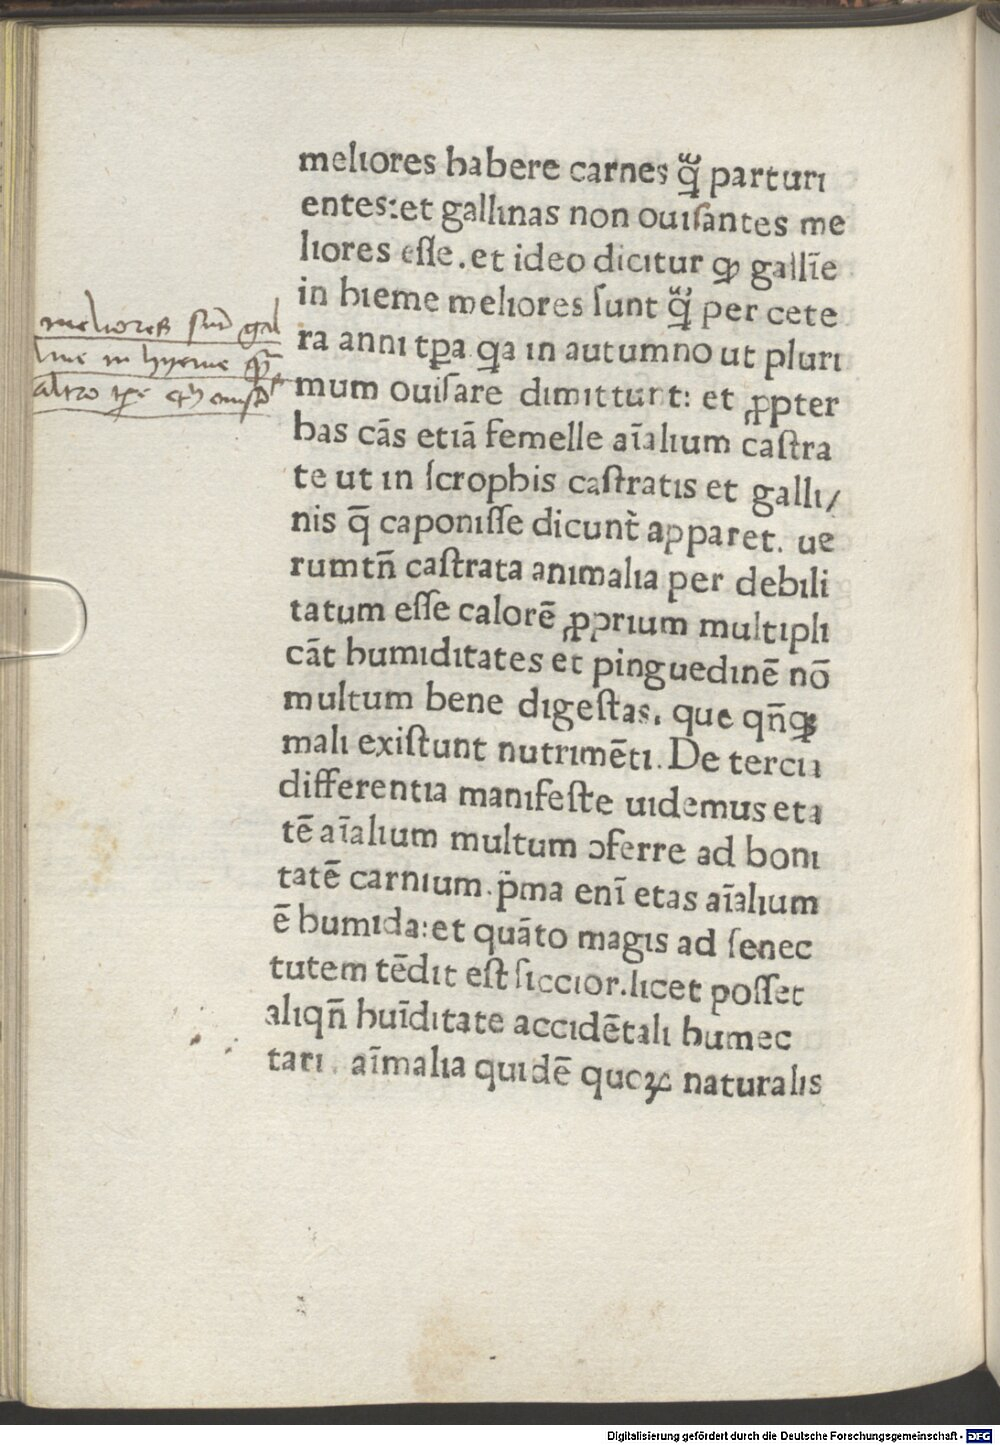 meliores habere carnes q̃ᷓ parturi
entes:et gallinas non ouiſantes me
liores eſſe.et ideo dicitur ꝙ gallīe
in hieme meliores ſunt q̃ᷓ per cete
ra anni tꝑa qa in autumno ut pluri
mum ouiſare dimittunt: et ꝓpter
has cās etiā femelle aīalium caſtra
te ut in ſcrophis caſtratis et galli/
nis q̄ caponiſſe dicunt᷑ apparet. ue
rumtn̄ caſtrata animalia per debili
tatum eſſe calorē ꝓprium multipli
cāt humiditates et pinguedinē nō
multum bene digeſtas. que qn̄qꝫ
mali exiſtunt nutrimēti. De tercia
differentia manifeſte uidemus eta
tē aīalium multum ↄferre ad boni
tatē carnium.p̄ma enī etas aīalium
ē humida:et quāto magis ad ſenec
tutem tēdit eſt ſiccior.licet poſſet
aliqn̄ huīditate accidētali humec
tari. aīmalia quidē quoꝝ naturalis
meliores sūt gal
line in hyeme qᷓ
altro tꝑe
Digitalisierung gefördert durch die Deutsche Forschungsgemeinschaft - DFG